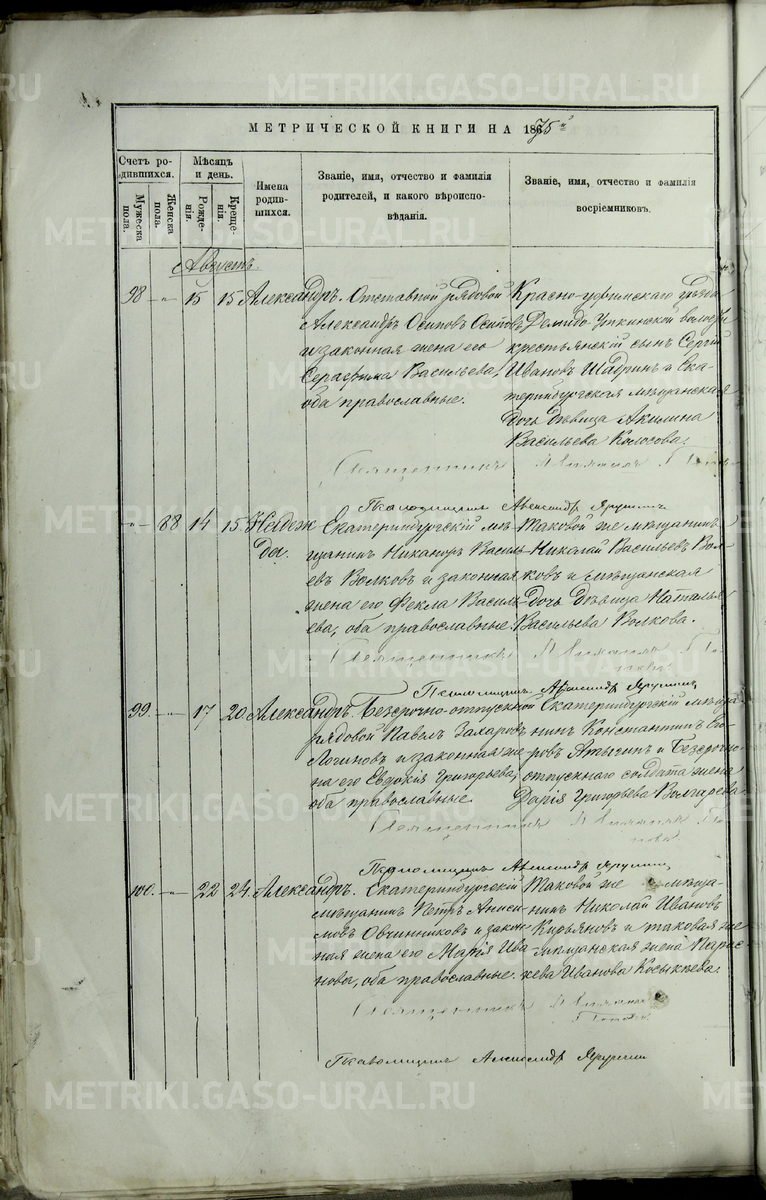 METRIKI.GASO-URAL.RU
МЕТРИЧЕСКОЙ КНИГИ НА 1875й
Счетъ ро-
дившихся.
Мужеска
пола.
Женска
пола.
Мѣсяцъ
и день.
Рожде-
нія.
Креще-
нія.
Имена
родив-
шихся.
Званіе, имя, отчество и фамилія
родителей, и какого вѣроиспо-
вѣданія.
Званіе, имя, отчество и фамилія
воспріемниковъ.
Августъ.
98 - „ - 15 15 Александръ.
Отставной рядовой
Александръ Осиповъ Осиповъ
и законная жена его
Серафима Васильева,
оба православные.
Красно-уфимскаго уѣзда
Демидо-Уткинской волости
крестьянскій сынъ Сергій
Ивановъ Шадринъ и Ека-
теринбургская мѣщанская
дочь дѣвица Акилина
Васильева Колосова.
Священникъ
Псаломщикъ Александръ
- „ - 88 14 15 Надеж-
да.
Екатеринбургскій мѣ-
щанинъ Никаноръ Василь-
евъ Волковъ и законная
жена его Фекла Василь-
ева, оба православные.
Таковой же мѣщанинъ
Николай Васильевъ Вол-
ковъ и мѣщанская
дочь дѣвица Наталья
Васильева Волкова.
Священникъ
Псаломщикъ Александръ
99. - „ - 17 20 Александръ.
Безсрочно-отпускной
рядовой Павелъ Захаровъ
Логиновъ и законная же-
на его Евдокія Григорьева,
оба православные.
Екатеринбургскій мѣща-
нинъ Константинъ Его-
ровъ и Безсрочно-
отпускнаго солдата жена
Дарія Григорьева
Священникъ
Псаломщикъ Александръ
100. - „ - 22 24 Александръ.
Екатеринбургскій
мѣщанинъ Петръ Аниси-
мовъ Овчинниковъ и закон-
ная жена его Марія Ива-
нова, оба православные.
Таковой же мѣща-
нинъ Николай Ивановъ
Кирьяновъ и таковая же
мѣщанская жена Парас-
кева Иванова
Священникъ
Псаломщикъ Александръ